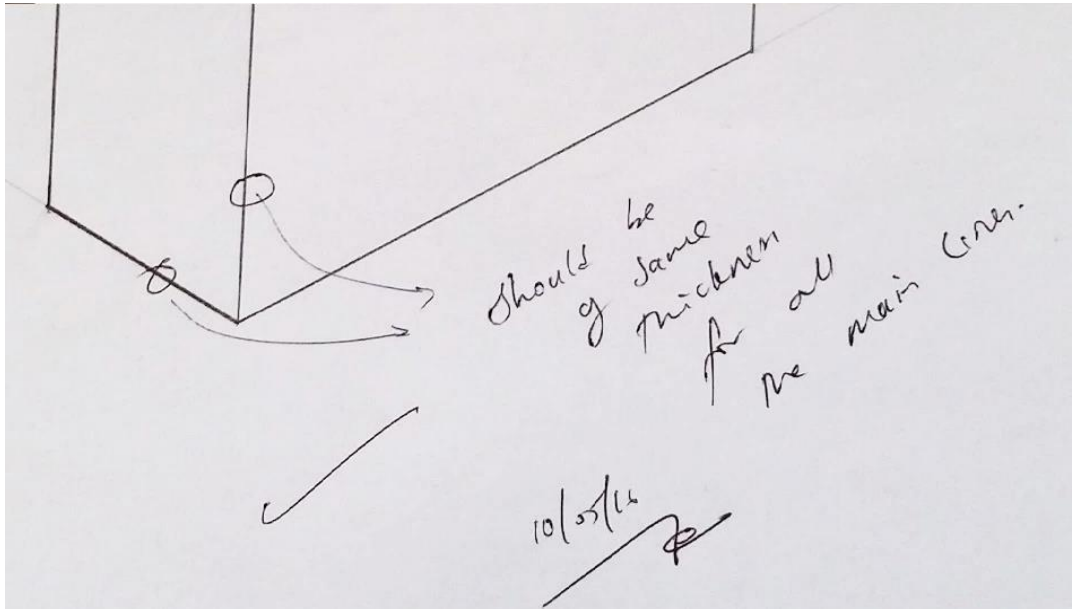 Should be
of same
thickness
for all
the main lines.
10/05/16